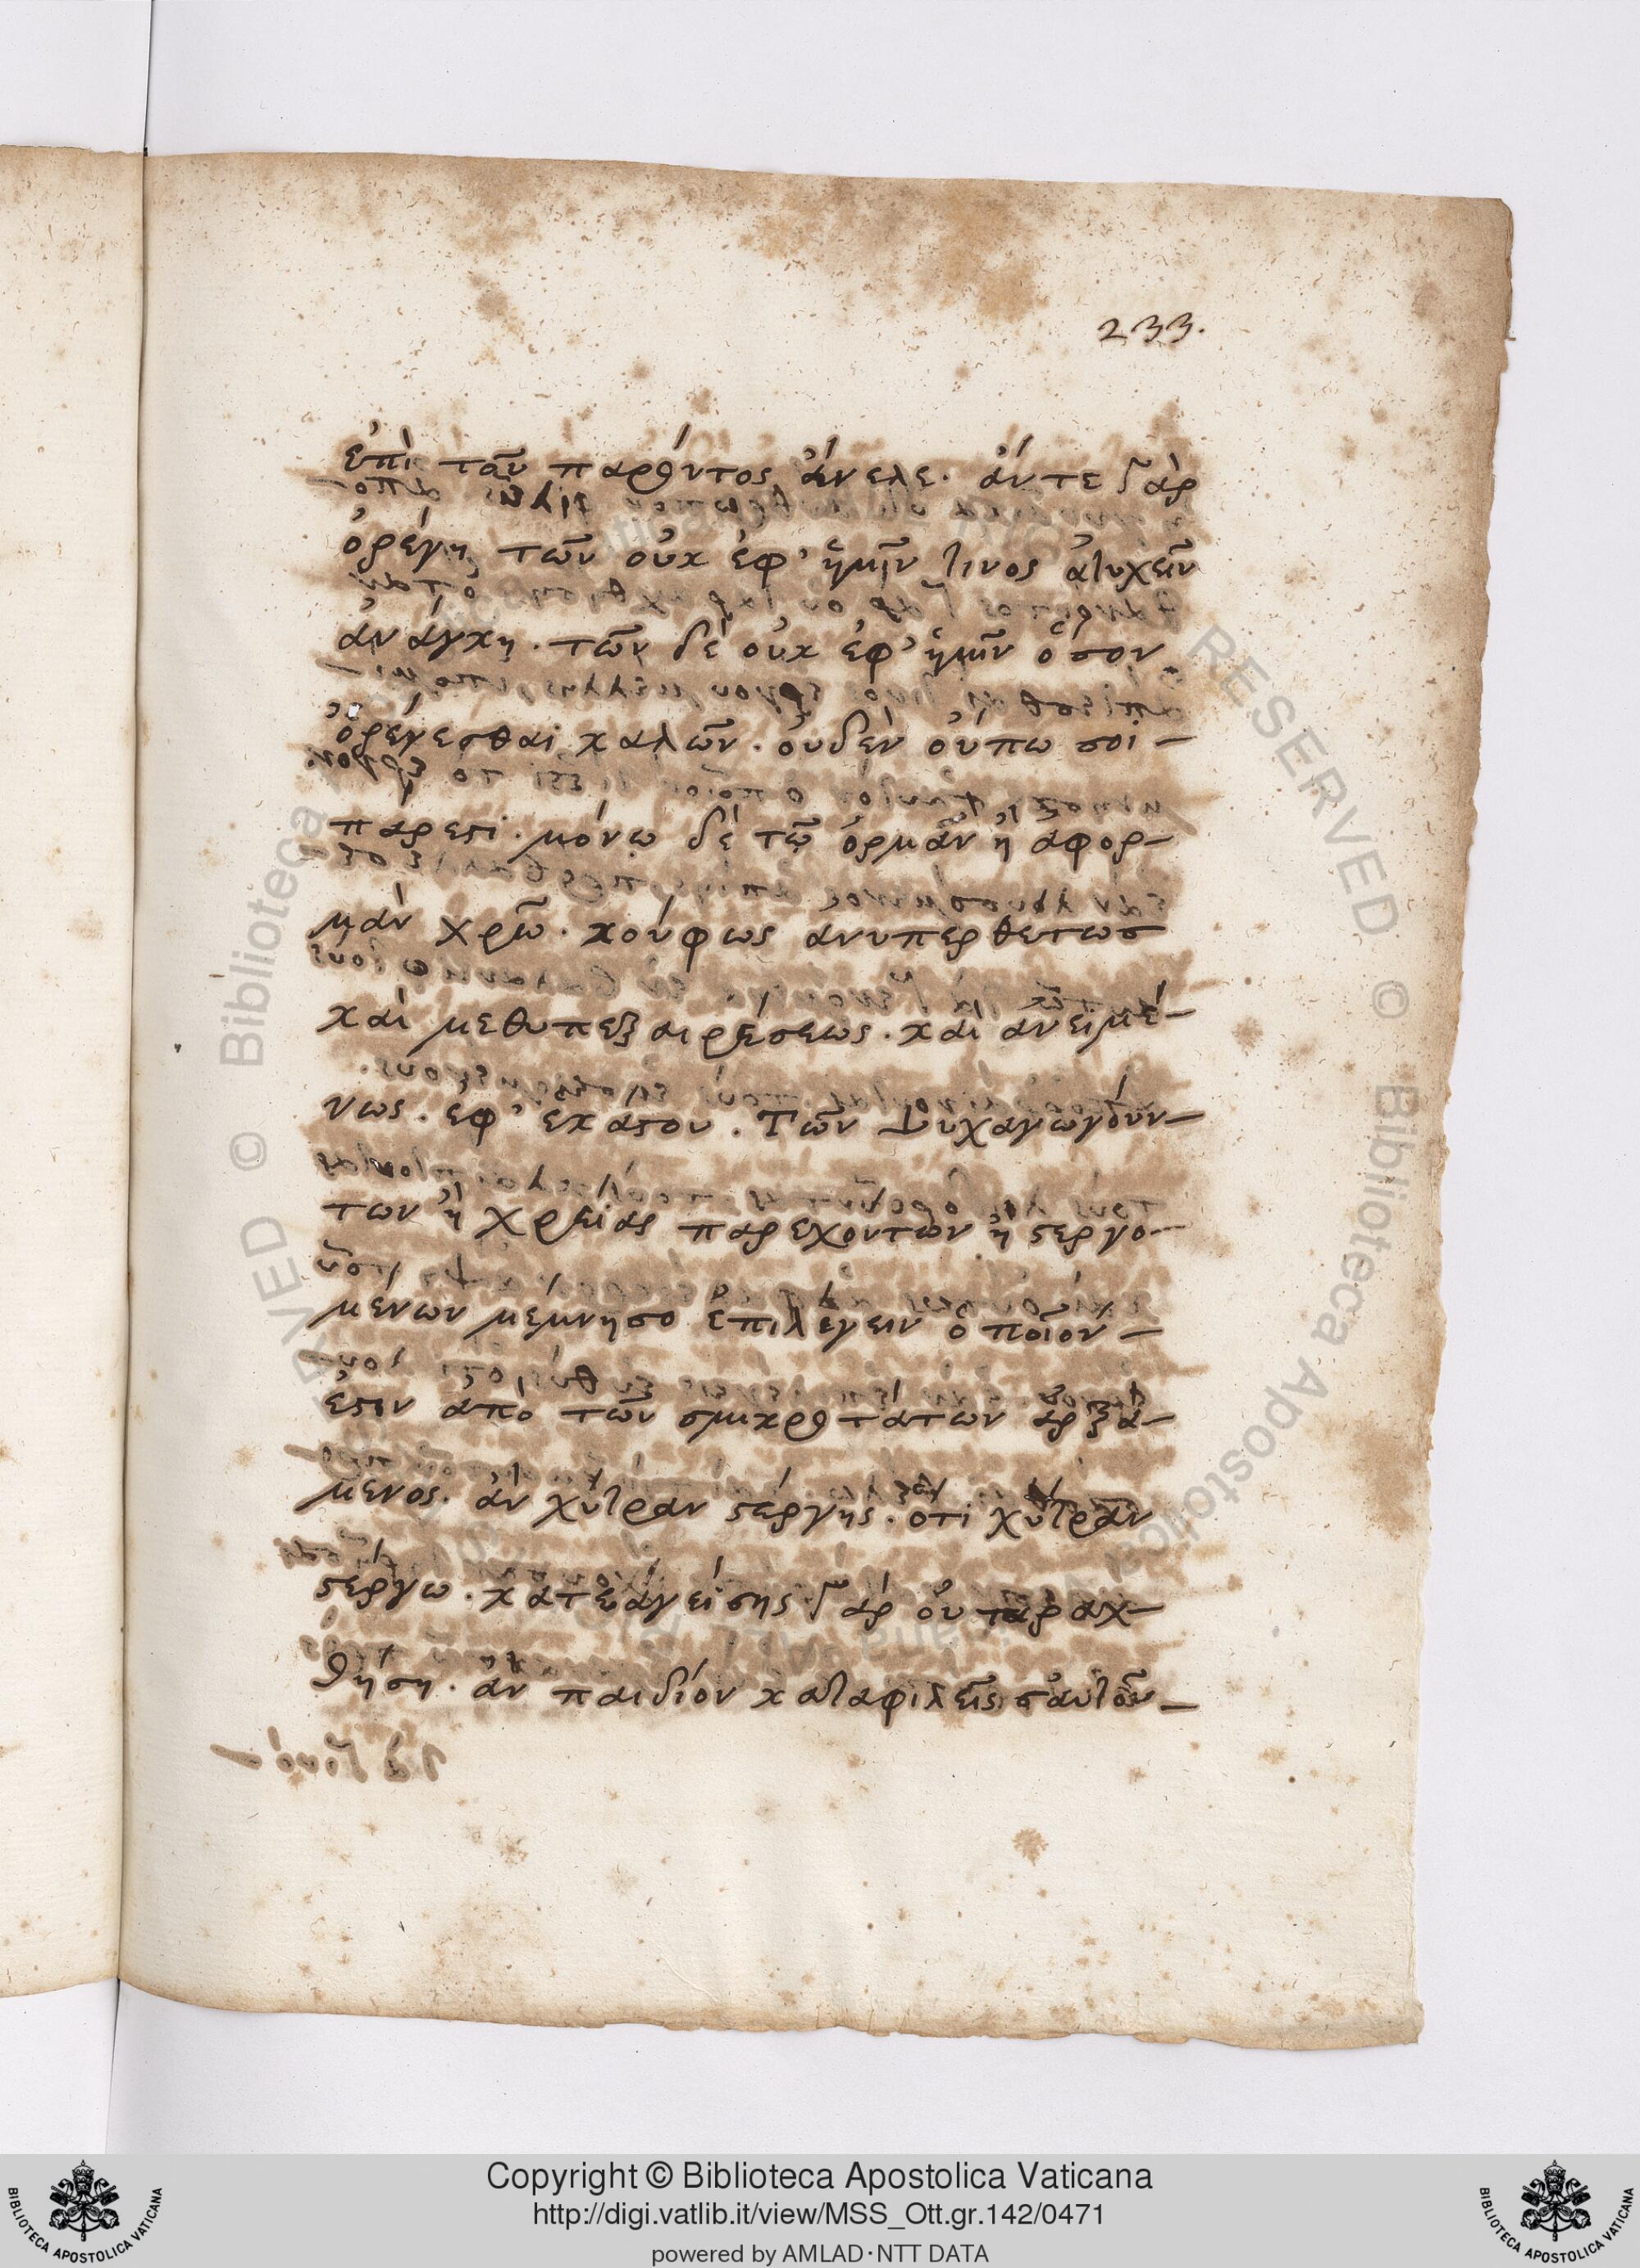 233.
ἐπὶ τοῦ παρόντος ἄνελε. ἄν τε γὰρ
ὀρέγη τῶν οὐκ ἐφ' ἡμῖν τινος ἀτυχεῖν
ἀνάγκη. τῶν δὲ οὐκ ἐφ' ἡμῖν ὅσον
ὀρέγεσθαι καλῶν. οὐδὲν οὔπω σοι –
πάρεστι. μόνω δὲ τῶ ὁρμᾶν ἢ αφορ–
μᾶν χρῶ. κούφως ανυπερθετως
καὶ μεθυπεξαιρέσεως. καὶ ανειμέ–
νως. ἐφ' ἑκαστου. Τῶν ψυχαγωγούν–
των ἢ χρείας παρεχοντων ἢ στεργο–
μενων μέμνησο ἐπιλέγειν ὁποῖον –
ἐστιν ἀπὸ τῶν σμικροτάτων ἀρξά–
μενος. ἂν χύτραν στέργης. οτι χύτραν
στέργω. κατεαγείσης γὰρ οὐ ταραχ–
θήση. ἂν παιδίον καταφιλεῖς σαυτοῦ –
Copyright © Biblioteca Apostolica Vaticana
http://digi.vatlib.it/view/MSS_Ott.gr.142/0471
powered by AMLAD·NTT DATA
BIBLIOTECA APOSTOLICA VATICANA
BIBLIOTECA APOSTOLICA VATICANA